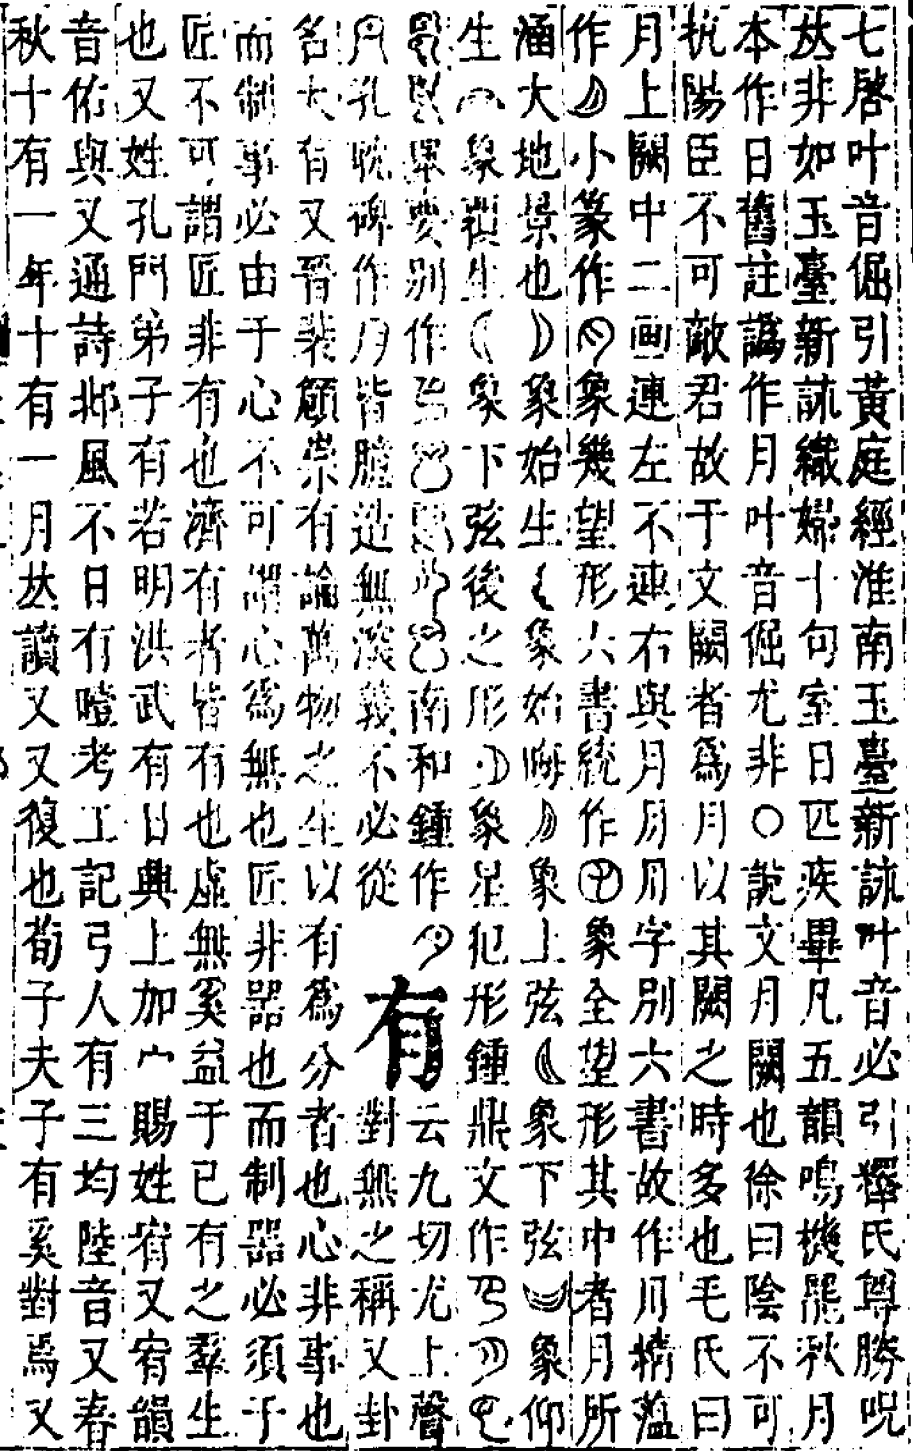 七啓叶音倔引黃庭經淮南玉臺新詠叶音必引釋氏尊勝呪
𠀤非如玉臺新詠織婦十句室日匹疾畢凡五韻鳴機罷秋月
本作日舊註譌作月叶音倔尤非○說文月闕也徐曰陰不可
抗陽臣不可敵君故于文闕者爲月以其闕之時多也毛氏曰
月上闕中二画連左不連右與月月月字別六書故作月精蘊
作小篆作象幾望形六書統作象全望形其中者月所
涵大地景也象始生象始晦象上弦象下弦象仰
生象覆生象下弦後之形象星犯形鐘鼎文作
別作南和鐘作有云九切尤上聲
月孔耽碑作月皆臆造無深義不必從對無之稱又卦
名大有又晉裴頠崇有論萬物之生以有爲分者也心非事也
而制事必由于心不可謂心爲無也匠非器也而制器必須于
匠不可謂匠非有也濟有者皆有也虛無奚益于已有之羣生
也又姓孔門弟子有若明洪武有日興上加宀賜姓宥又宥韻
音佑與又通詩邶風不日有曀考工記弓人有三均陸音又春
秋十有一年十有一月𠀤讀又又復也荀子夫子有奚對焉又